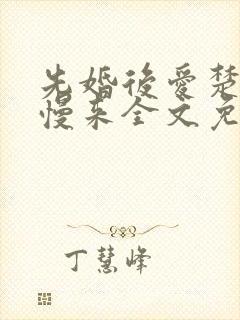 先婚後愛楚
慢來全文免
丁慧峰